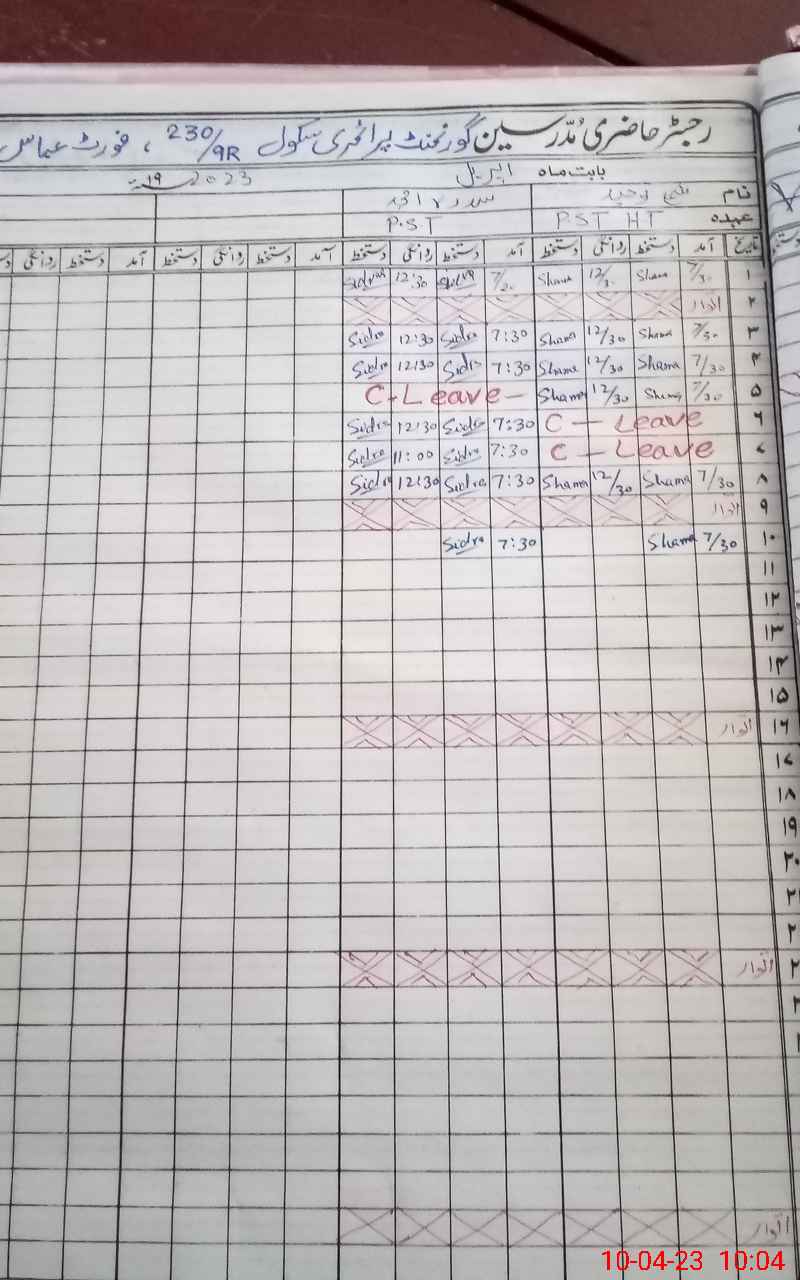 رجسٹر حاضری مدرسین گورنمنٹ پرائمری سکول 230/9R ، فورٹ عباس
بابت ماہ اپریل 2023
نام سدرہ احمد
عہدہ PST HT P.S.T
تاریخ آمد دستخط روانگی دستخط آمد دستخط روانگی دستخط آمد دستخط روانگی دستخط آمد دستخط روانگی
۱ 7/30 Shama 12/30 Shama Sidra 12:30 Sidra
۲ اتوار
۳ 7/30 Shama 12/30 Shama 7:30 Sidra 12:30 Sidra
۴ 7/30 Shama 12/30 Shama 7:30 Sidra 12:30 Sidra
۵ 7/30 Shama 12/30 Shama C-Leave-
۶ C - Leave 7:30 Sidra 12:30 Sidra
۷ C - Leave 7:30 Sidra 11:00 Sidra
۸ 7/30 Shama 12/30 Shama 7:30 Sidra 12:30 Sidra
۹ اتوار
۱۰ 7/30 Shama 7:30 Sidra
۱۱
۱۲
۱۳
۱۴
۱۵
۱۶ اتوار
۱۷
۱۸
۱۹
۲۰
۲۱
۲
۲ اتوار
۲
اتوار
10-04-23 10:04